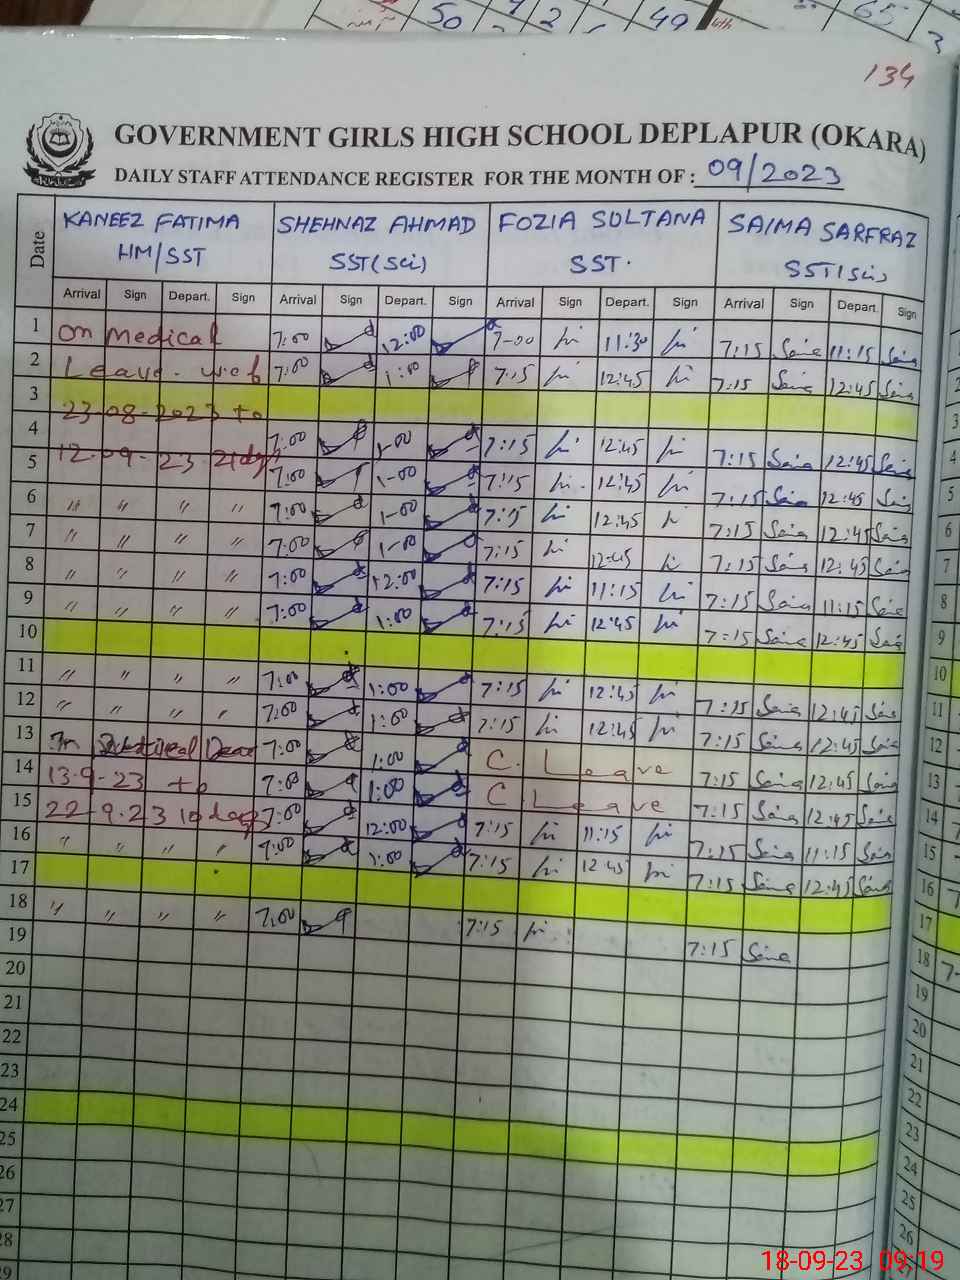 50 2 49 4th 65
3
134
GOVERNMENT GIRLS HIGH SCHOOL DEPLAPUR (OKARA)
DAILY STAFF ATTENDANCE REGISTER FOR THE MONTH OF : 09/2023
Date KANEEZ FATIMA SHEHNAZ AHMAD FOZIA SULTANA SAIMA SARFRAZ
HM/SST SST(Sci) SST. SST(Sci)
Arrival Sign Depart. Sign Arrival Sign Depart. Sign Arrival Sign Depart. Sign Arrival Sign Depart. Sign
1 On Medical 7:00 12:00 7-00 11:30 7:15 11:15
2 Leave. w.e.f 7:00 1:00 7:15 12:45 7:15 12:45
3 23-08-2023 to
4 12-09-23 21 days 7:00 1-00 7:15 12:45 7:15 12:45
5 7:00 1-00 7:15 12:45 7:15 12:45
6 " " " " 7:00 1-00 7:15 12:45 7:15 12:45
7 " " " " 7:00 1-00 7:15 12:45 7:15 12:45
8 " " " " 7:00 12:00 7:15 11:15 7:15 11:15
9 " " " " 7:00 1:00 7:15 12:45 7:15 12:45
10
11 " " " " 7:00 1:00 7:15 12:45 7:15 12:45
12 " " " " 7:00 1:00 7:15 12:45 7:15 12:45
13 7:00 1:00 C. Leave 7:15 12:45
14 13-9-23 to 7:00 1:00 C. Leave 7:15 12:45
15 22-9-23 10 days 7:00 12:00 7:15 11:15 7:15 11:15
16 " " " " 7:00 1:00 7:15 12:45 7:15 12:45
17
18 " " " " 7:00 7:15 7:15
19
20
21
22
23
24
25
26
27
28
29
18-09-23 09:19